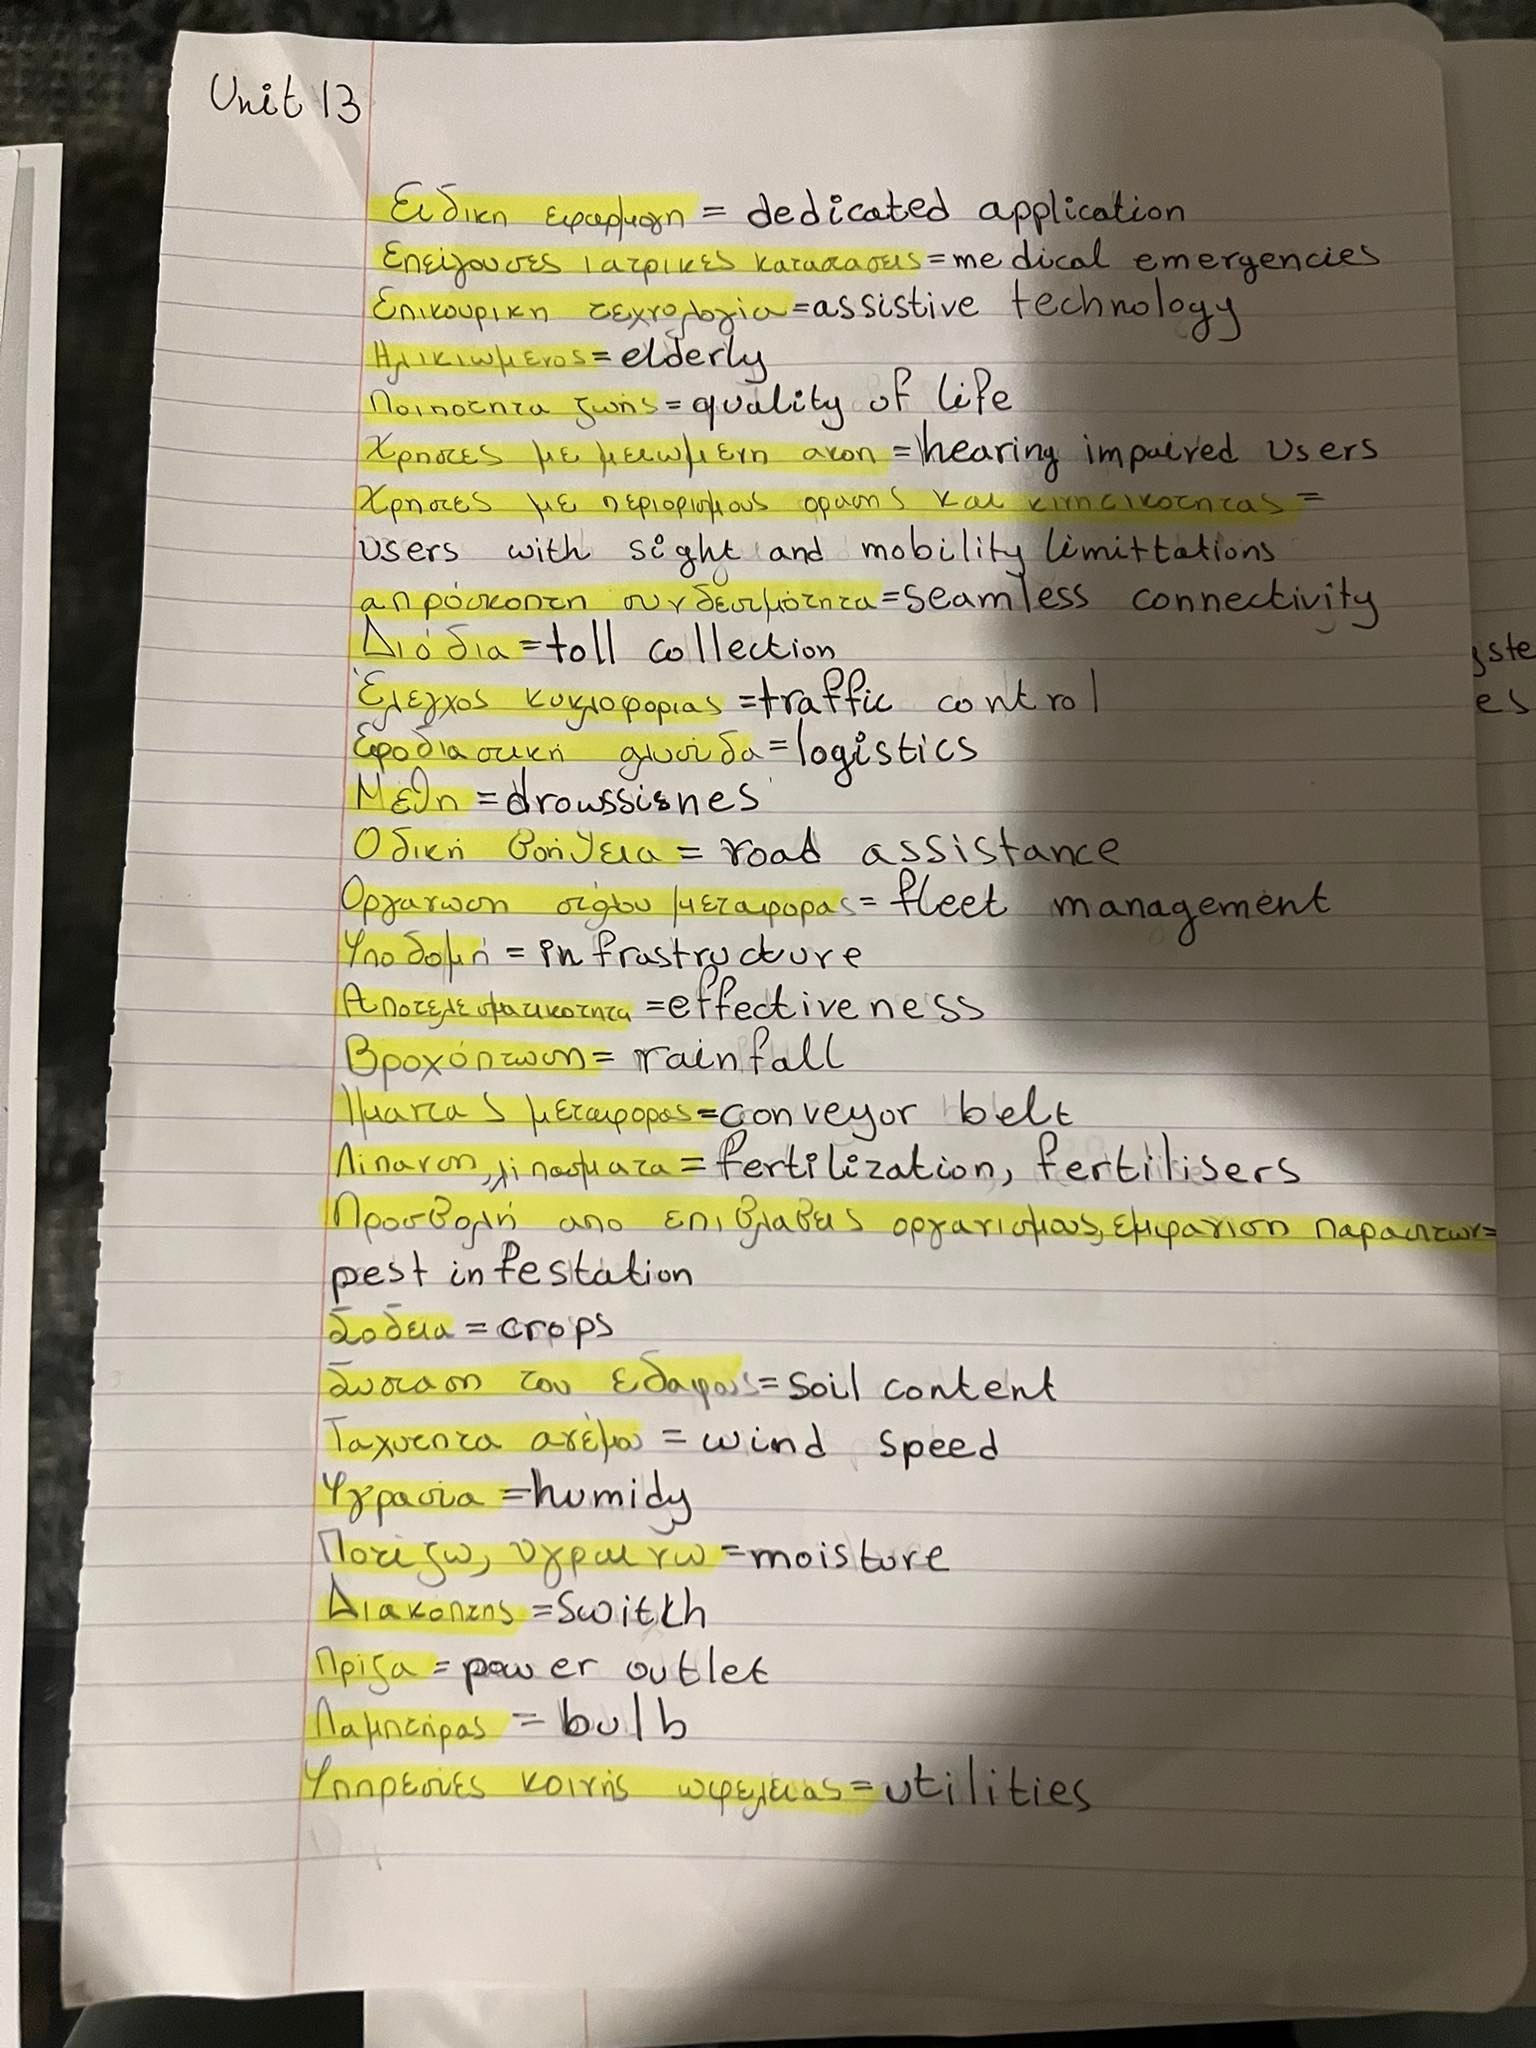 Unit 13
Ειδικη εφαρμογη = dedicated application
Επείγουσες ιατρικες καταστασεις = medical emergencies
Επικουρικη τεχνολογία = assistive technology
Ηλικιωμενος = elderly
Ποιποτητα ζωής = quality of life
Χρηστες με μειωμενη ακοη = hearing impaired users
Χρηστες με περιορισμους ορασης και κινητικοτητας =
users with sight and mobility limittations
απρόσκοπτη συνδεσιμότητα = seamless connectivity
Διόδια = toll collection
Έλεγχος κυκλοφοριας = traffic control
Εφοδιαστική αλυσίδα = logistics
Μέθη = drowssisnes
Οδική βοήθεια = road assistance
Οργανωση στόλου μεταφορας = fleet management
Υποδομή = infrastructure
Αποτελεσματικοτητα = effectiveness
Βροχόπτωση = rainfall
Ιμαντας μεταφορας = conveyor belt
Λιπανση, λίπασματα = fertilization, fertilisers
Προσβολή απο επιβλαβεις οργανισμους, εμφανιση παρασιτων =
pest infestation
Σοδεια = crops
Συσταση του εδαφους = soil content
Ταχυτητα ανέμου = wind speed
Υγρασία = humidy
Ποτίζω, υγραινω = moisture
Διακόπτης = switch
Πρίζα = power outlet
Λαμπτήρας = bulb
Υπηρεσίες κοινής ωφελειας = utilities
yste
es